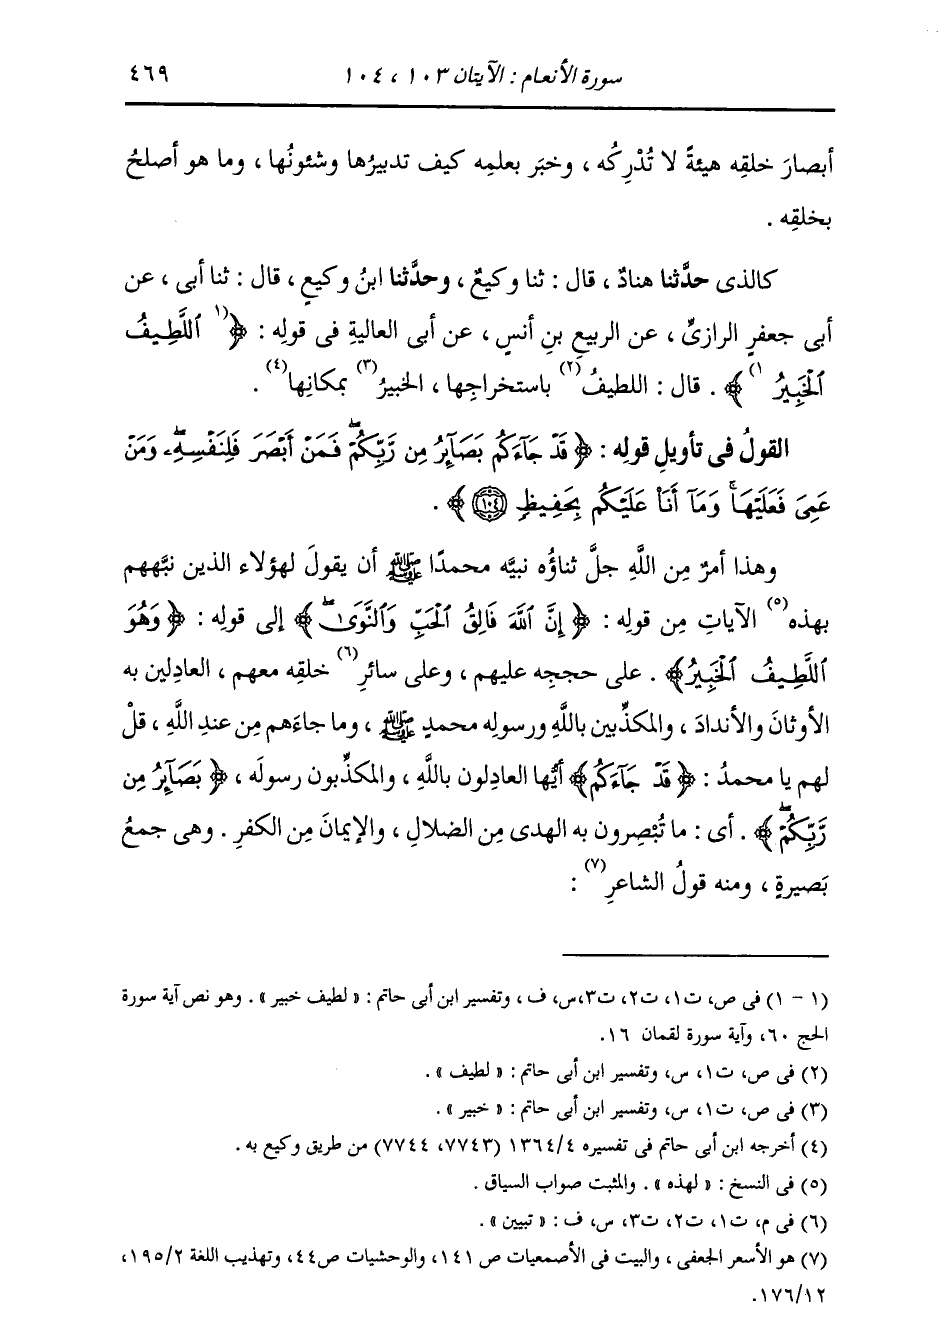 سورة الأنعام : الآيتان ١٠٣ ، ١٠٤ ٤٦٩
أبصارَ خلقِه هيئةً لا تُدْرِكُه ، وخبَر بعلمِه كيف تدبيرُها وشئونُها ، وما هو أصلحُ
بخلقِه .
كالذى حدَّثنا هنادٌ ، قال : ثنا وكيعٌ ، وحدَّثنا ابنُ وكيعٍ ، قال : ثنا أبى ، عن
أبى جعفرٍ الرازىِّ ، عن الربيعِ بنِ أنسٍ ، عن أبى العاليةِ فى قولِه : ﴿(١ ٱللَّطِيفُ
ٱلْخَبِيرُ ١)﴾ . قال : اللطيفُ(٢) باستخراجِها ، الخبيرُ(٣) بمكانِها(٤) .
القولُ فى تأويلِ قولِه : ﴿ قَدْ جَآءَكُم بَصَآئِرُ مِن رَّبِّكُمْۖ فَمَنْ أَبْصَرَ فَلِنَفْسِهِۦۖ وَمَنْ
عَمِىَ فَعَلَيْهَاۚ وَمَآ أَنَا۠ عَلَيْكُم بِحَفِيظٍ ١٠٤ ﴾ .
وهذا أمرٌ مِن اللَّهِ جلَّ ثناؤُه نبيَّه محمدًا ﷺ أن يقولَ لهؤلاء الذين نبَّههم
بهذه(٥) الآياتِ مِن قولِه : ﴿ إِنَّ ٱللَّهَ فَالِقُ ٱلْحَبِّ وَٱلنَّوَىٰۖ ﴾ إلى قولِه : ﴿ وَهُوَ
ٱللَّطِيفُ ٱلْخَبِيرُ﴾ . على حججِه عليهم ، وعلى سائرِ(٦) خلقِه معهم ، العادلين به
الأوثانَ والأندادَ ، والمكذِّبين باللَّهِ ورسولِه محمدٍ ﷺ ، وما جاءَهم مِن عندِ اللَّهِ ، قلْ
لهم يا محمدُ : ﴿ قَدْ جَآءَكُم﴾ أيُّها العادلون باللَّهِ ، والمكذِّبون رسولَه ، ﴿ بَصَآئِرُ مِن
رَّبِّكُمْۖ ﴾ . أى : ما تُبْصِرون به الهدى مِن الضلالِ ، والإيمانَ مِن الكفرِ . وهى جمعُ
بَصيرةٍ ، ومنه قولُ الشاعرِ(٧) :
(١ - ١) فى ص، ت١، ت٢، ت٣،س، ف ، وتفسير ابن أبى حاتم : « لطيف خبير » . وهو نص آية سورة
الحج ٦٠، وآية سورة لقمان ١٦.
(٢) فى ص، ت١، س، وتفسير ابن أبى حاتم : « لطيف » .
(٣) فى ص، ت١، س، وتفسير ابن أبى حاتم : « خبير » .
(٤) أخرجه ابن أبى حاتم فى تفسيره ١٣٦٤/٤ (٧٧٤٣، ٧٧٤٤) من طريق وكيع به .
(٥) فى النسخ : « لهذه » . والمثبت صواب السياق .
(٦) فى م، ت١، ت٢، ت٣، س، ف : « تبيين » .
(٧) هو الأسعر الجعفى ، والبيت فى الأصمعيات ص ١٤١، والوحشيات ص٤٤، وتهذيب اللغة ١٩٥/٢،
١٧٦/١٢.